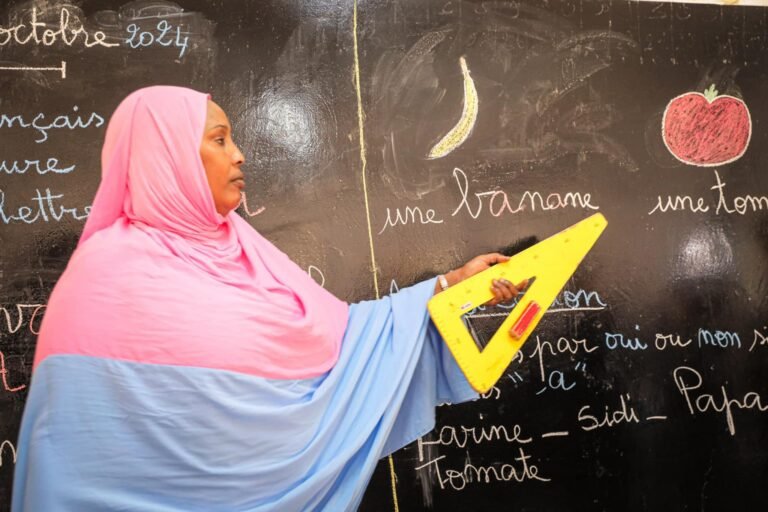 octobre 2024
ançais
ure
lettre
une banane
une tom
par oui ou non si
"a"
Farine – Sidi – Papa
Tomate